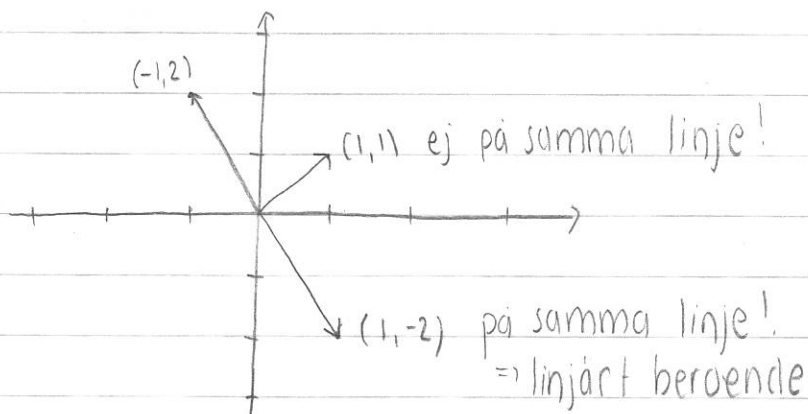 (-1,2)
(1,1) ej på samma linje!
(1,-2) på samma linje!
=> linjärt beroende